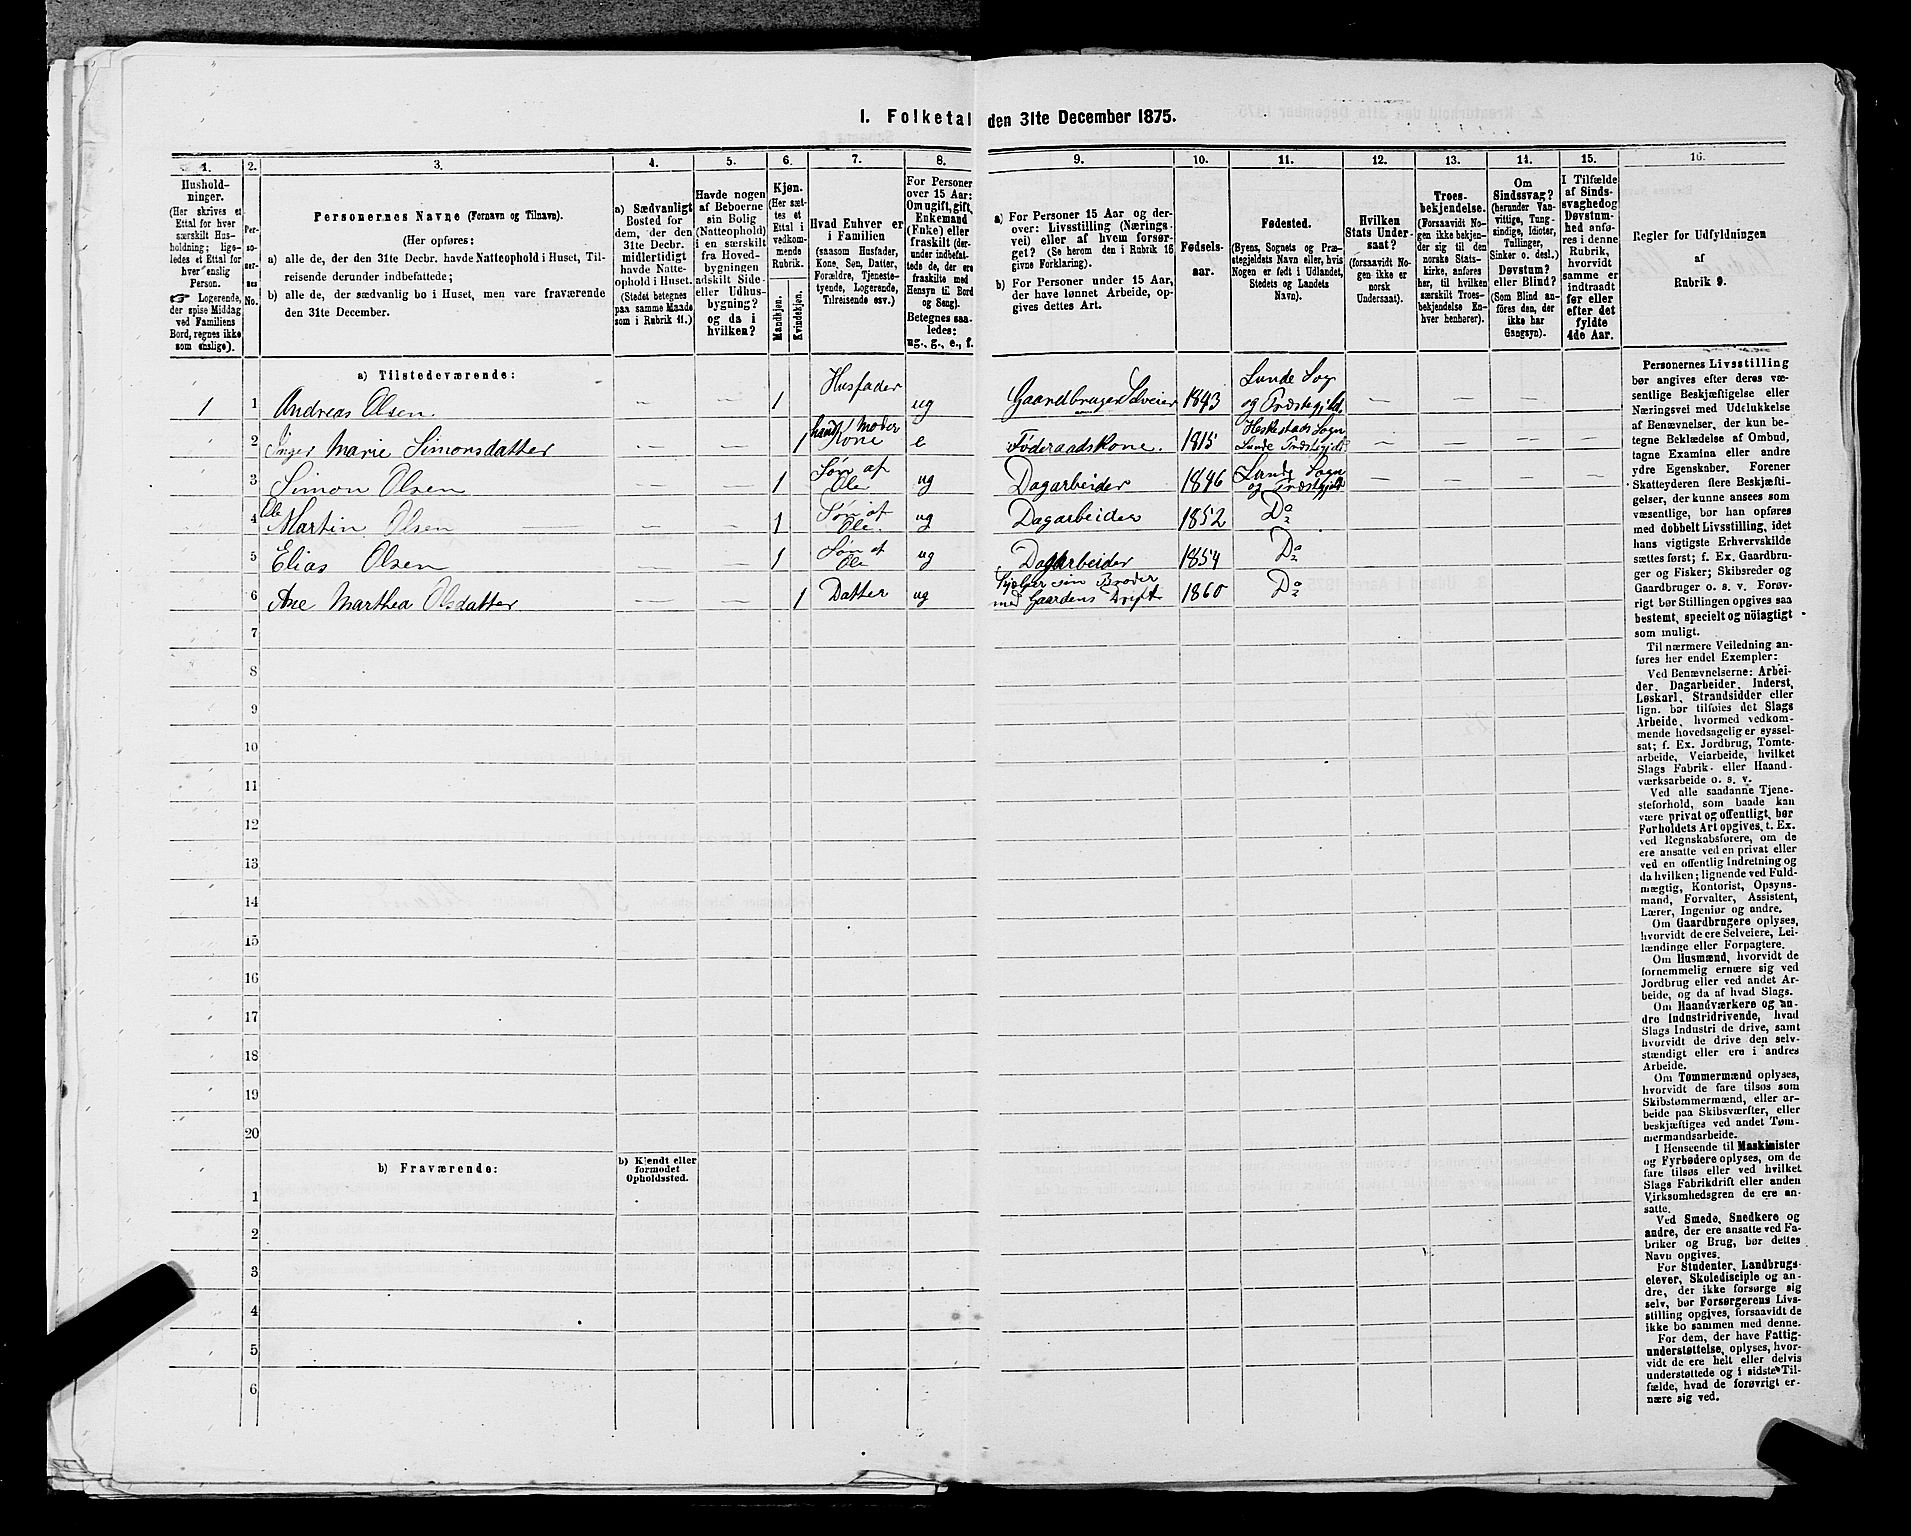 I. Folketal den 31te December 1875.
1.
Hushold-
ninger.
(Her skrives et
Ettal for hver
særskilt Hus-
holdning; lige-
ledes et Ettal for
hver enslig
Person.
☞ Logerende,
der spise Middag
ved Familiens
Bord, regnes ikke
som enslige).
2.
Per-
so-
ner-
nes
No.
3.
Personernes Navne (Fornavn og Tilnavn).
(Her opføres:
a) alle de, der den 31te Decbr. havde Natteophold i Huset, Til-
reisende derunder indbefattede;
b) alle de, der sædvanlig bo i Huset, men vare fraværende
den 31te December.
4.
a) Sædvanligt
Bosted for
dem, der den
31te Decbr.
midlertidigt
havde Natte-
ophold i Huset.
(Stedet betegnes
paa samme Maade
som i Rubrik 11.)
5.
Havde nogen
af Beboerne
sin Bolig
(Natteophold)
i en særskilt
fra Hoved-
bygningen
adskilt Side-
eller Udhus-
bygning?
og da i
hvilken?
6.
Kjøn.
(Her sæt-
tes et
Ettal i
vedkom-
mende
Rubrik.
Mandkjøn.
Kvindekjøn.
7.
Hvad Enhver er
i Familien
(saasom Husfader,
Kone, Søn, Datter,
Forældre, Tjeneste-
tyende, Logerende,
Tilreisende osv.)
8.
For Personer
over 15 Aar:
Om ugift, gift,
Enkemand
(Enke) eller
fraskilt (der-
under indbefat-
tede de, der ere
fraskilte med
Hensyn til Bord
og Seng).
Betegnes saa-
ledes:
ug., g., e., f.
9.
a) For Personer 15 Aar og der-
over: Livsstilling (Nærings-
vei) eller af hvem forsør-
get? (Se herom den i Rubrik 16
givne Forklaring).
b) For Personer under 15 Aar,
der have lønnet Arbeide, op-
gives dettes Art.
10.
Fødsels-
aar.
11.
Fødested.
(Byens, Sognets og Præ-
stegjeldets Navn eller, hvis
Nogen er født i Udlandet,
Stedets og Landets
Navn).
12.
Hvilken
Stats Under-
saat?
(forsaavidt No-
gen ikke er
norsk
Undersaat).
13.
Troes-
bekjendelse.
(Forsaavidt No-
gen ikke bekjen-
der sig til den
norske Stats-
kirke, anføres
her, til hvilken
særskilt Troes-
bekjendelse En-
hver henhører).
14.
Om
Sindssvag?
(herunder Van-
vittige, Tung-
sindige, Idioter,
Tullinger,
Sinker o. desl.)
Døvstum?
eller Blind?
(Som Blind an-
føres den, der
ikke har
Gangsyn).
15.
I Tilfælde
af Sinds-
svaghed og
Døvstum-
hed anfø-
res i denne
Rubrik,
hvorvidt
samme er
indtraadt
før eller
efter det
fyldte
4de Aar.
16.
Regler for Udfyldningen
af
Rubrik 9.
a) Tilstedeværende:
1 1 Andreas Olsen. — — 1 Husfader ug Gaardbruger Selveier 1843 Lunde Sog og Præstegjeld. — — — —
2 Inger Marie Simonsdatter — — 1 hans Moder Kone e Föderaadskone. 1815 Heskestads Sogn Lunde Præstegjeld — — — —
3 Simon Olsen — — 1 Søn af Ole ug Dagarbeider 1846 Lunde Sogn og Præstegjeld — — — —
4 Ole Martin Olsen — — 1 Søn af Ole. ug Dagarbeider 1852 Do
5 Elias Olsen — — 1 Søn af Ole ug Dagarbeider 1854 Do
6 Ane Marthea Olsdatter — — 1 Datter ug Hjelper sin Broder med Gaardens Drift 1860 Do
7
8
9
10
11
12
13
14
15
16
17
18
19
20
b) Fraværende:
b) Kjendt eller
formodet
Opholdssted.
1
2
3
4
5
6
Personernes Livsstilling
bør angives efter deres væ-
sentlige Beskjæftigelse eller
Næringsvei med Udelukkelse
af Benævnelser, der kun be-
tegne Beklædelse af Ombud,
tagne Examina eller andre
ydre Egenskaber. Forener
Skatteyderen flere Beskjæfti-
gelser, der kunne ansees som
væsentlige, bør han opføres
med dobbelt Livsstilling, idet
hans vigtigste Erhvervskilde
sættes først; f. Ex. Gaardbru-
ger og Fisker; Skibsreder og
Gaardbruger o. s. v. Forøv-
rigt bør Stillingen opgives saa
bestemt, specielt og nöiagtigt
som muligt.
Til nærmere Veiledning an-
føres her endel Exempler:
Ved Benævnelserne: Arbei-
der, Dagarbeider, Inderst,
Løskarl, Strandsidder eller
lign. bør tilføies det Slags
Arbeide, hvormed vedkom-
mende hovedsagelig er syssel-
sat; f. Ex. Jordbrug, Tomte-
arbeide, Veiarbeide, hvilket
Slags Fabrik- eller Haand-
værksarbeide o. s. v.
Ved alle saadanne Tjene-
steforhold, som baade kan
være privat og offentligt, bør
Forholdets Art opgives, t. Ex.
ved Regnskabsførere, om de
ere ansatte ved en privat eller
ved en offentlig Indretning og
da hvilken; lignende ved Fuld-
mægtig, Kontorist, Opsyns-
mand, Forvalter, Assistent,
Lærer, Ingeniør og andre.
Om Gaardbrugere oplyses,
hvorvidt de ere Selveiere, Lei-
lændinge eller Forpagtere.
Om Husmænd, hvorvidt de
fornemmelig ernære sig ved
Jordbrug eller ved andet Ar-
beide, og da af hvad Slags.
Om Haandværkere og an-
dre Industridrivende, hvad
Slags Industri de drive, samt
hvorvidt de drive den selv-
stændigt eller ere i andres
Arbeide.
Om Tømmermænd oplyses,
hvorvidt de fare tilsøs som
Skibstømmermænd, eller ar-
beide paa Skibsværfter, eller
beskjæftiges ved andet Tøm-
mermandsarbeide.
I Henseende til Maskinister
og Fyrbødere oplyses, om de
fare tilsøs eller ved hvilket
Slags Fabrikdrift eller anden
Virksomhedsgren de ere an-
satte.
Ved Smede, Snedkere og
andre, der ere ansatte ved Fa-
briker og Brug, bør dettes
Navn opgives.
For Studenter, Landbrugs-
elever, Skoledisciple og an-
dre, der ikke forsørge sig
selv, bør Forsørgerens Livs-
stilling opgives, forsaavidt de
ikke bo sammen med denne.
For dem, der have Fattig-
understøttelse, oplyses, hvor-
vidt de ere helt eller delvis
understøttede og i sidste Til-
fælde, hvad de forøvrigt er-
nære sig ved.